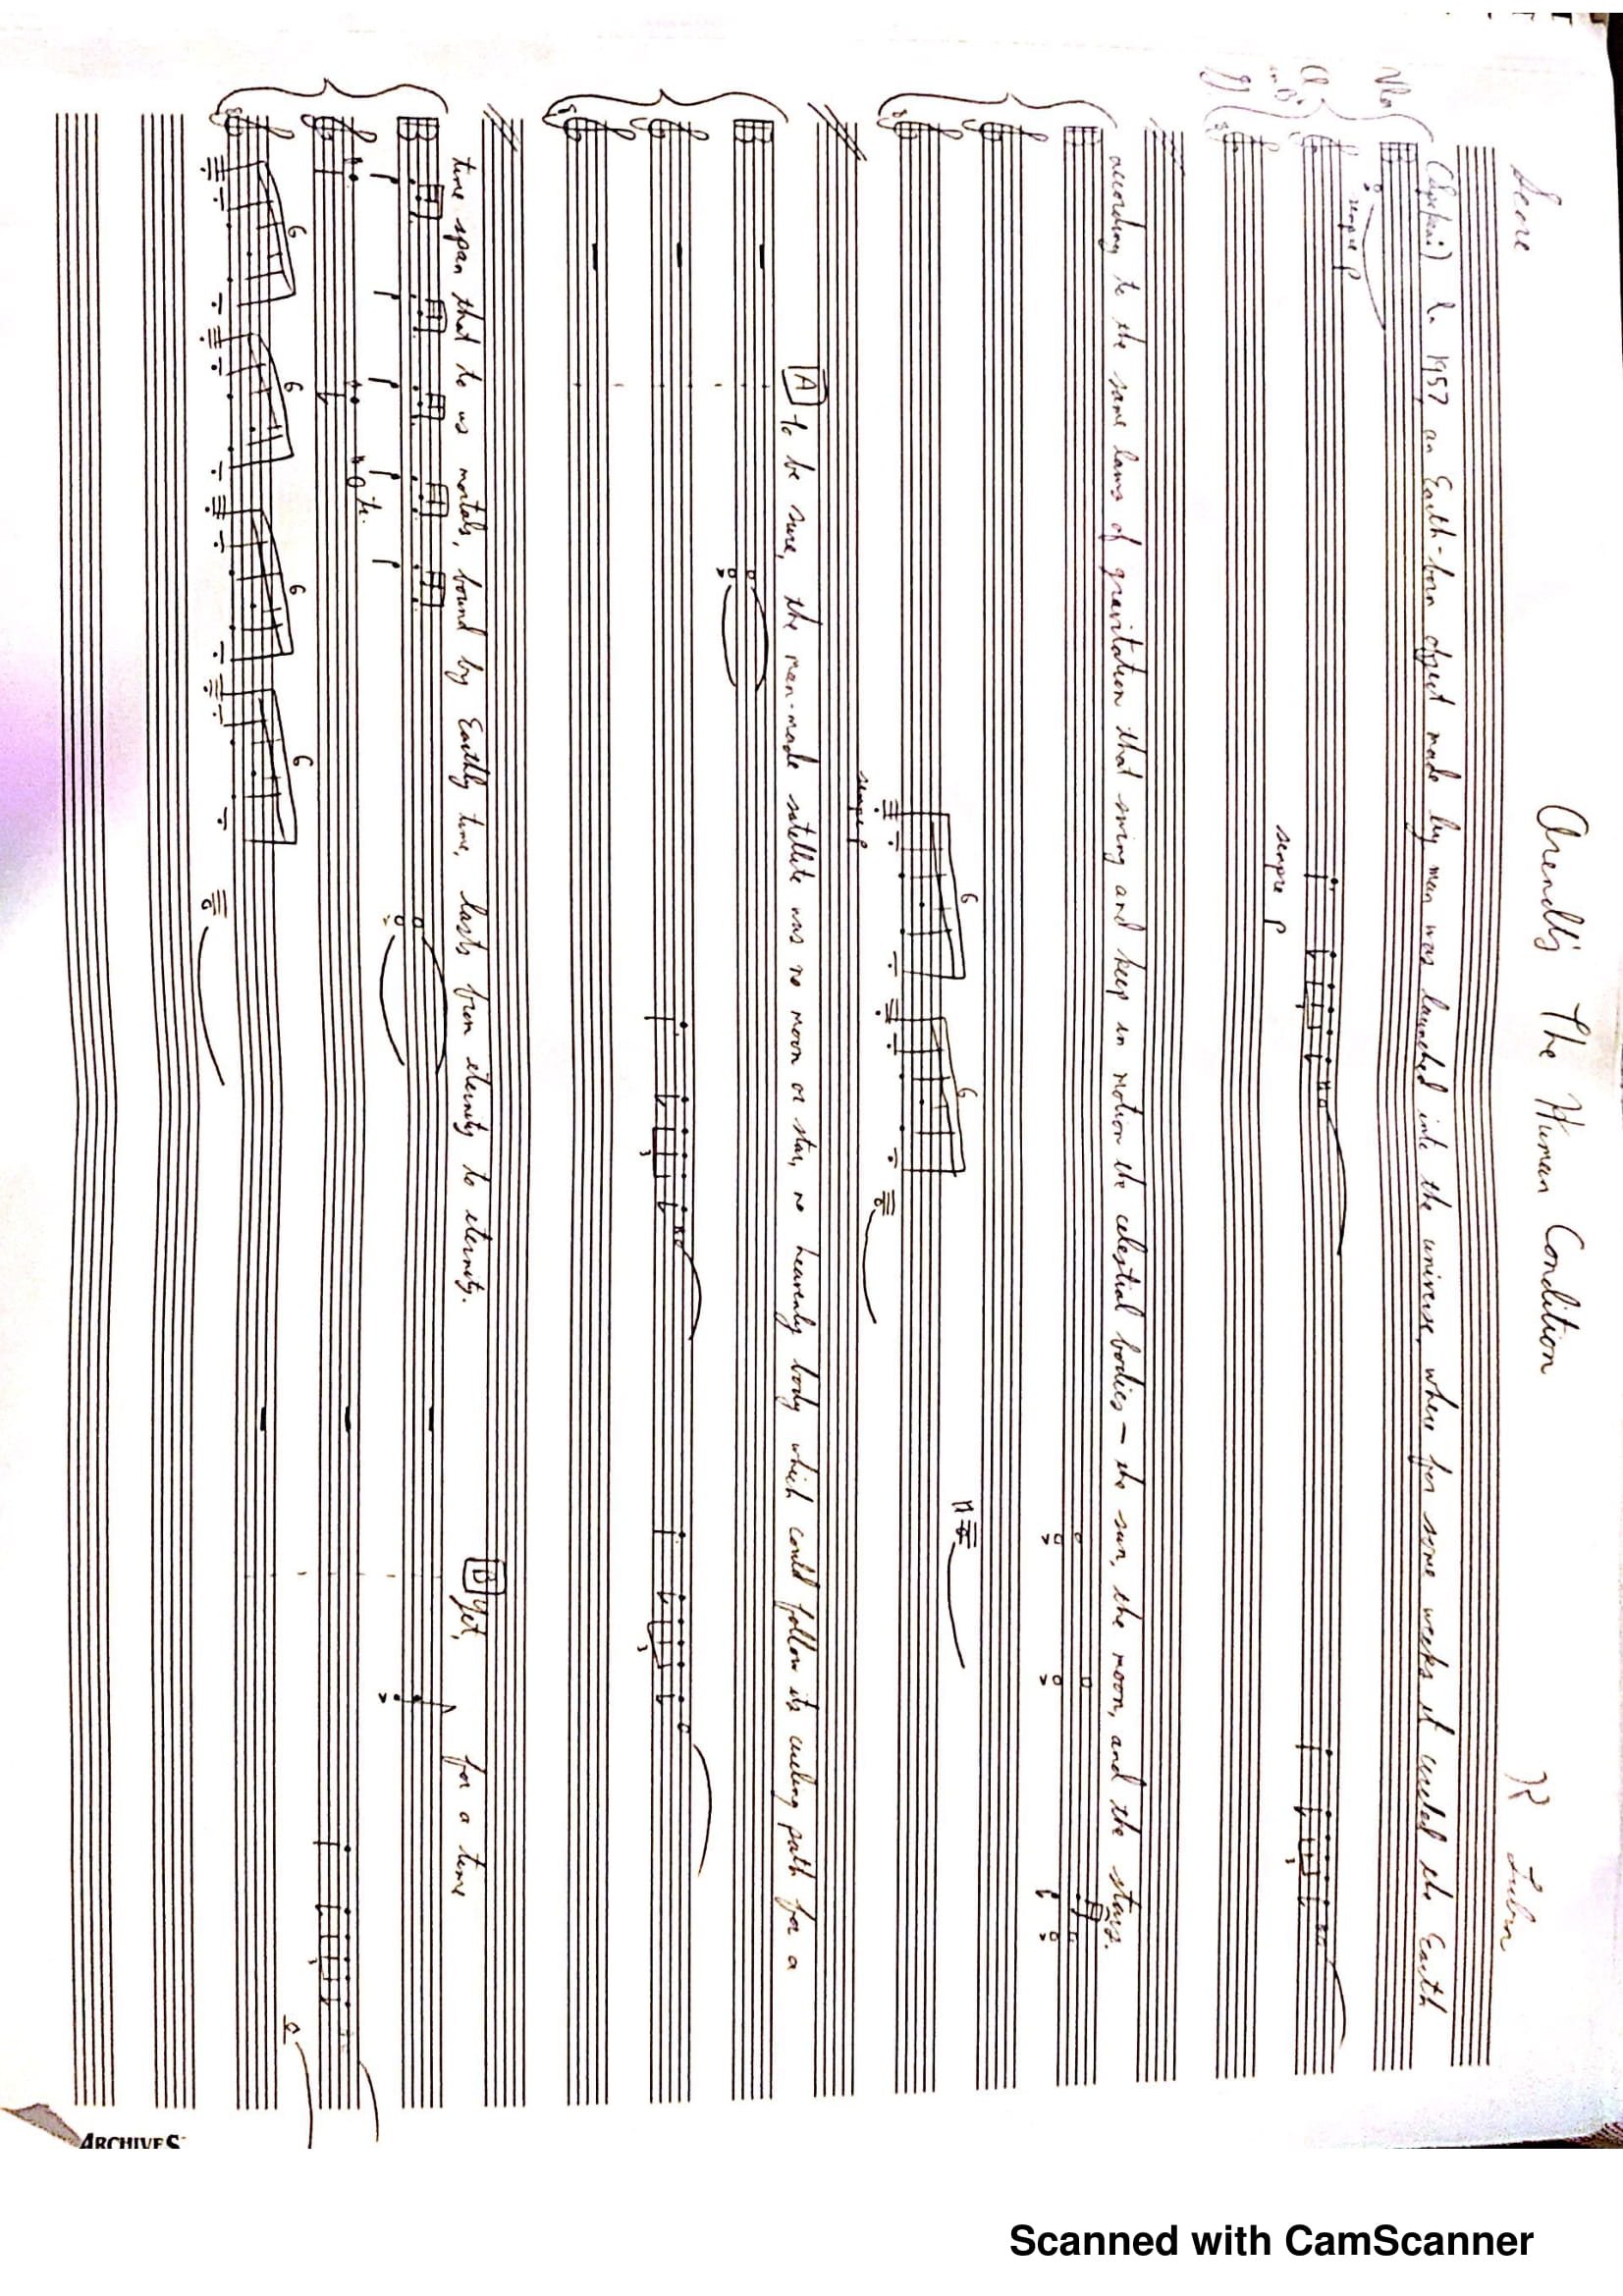 Score
Arendt's The Human Condition
Vla
Cl.
in Bb
(Speaker) In 1957, an Earth-born object made by man was launched into the universe, where for some weeks it circled the Earth
sempre p
sempre p
according to the same laws of gravitation that swing and keep in motion the celestial bodies – the sun, the moon, and the stars.
6 6
sempre p
A To be sure, the man-made satellite was no moon or star, no heavenly body which could follow its circling path for a
3 3
time span that to us mortals, bound by Earthly time, lasts from eternity to eternity. B Yet, for a time
6 6 6 6
ARCHIVES
Scanned with CamScanner